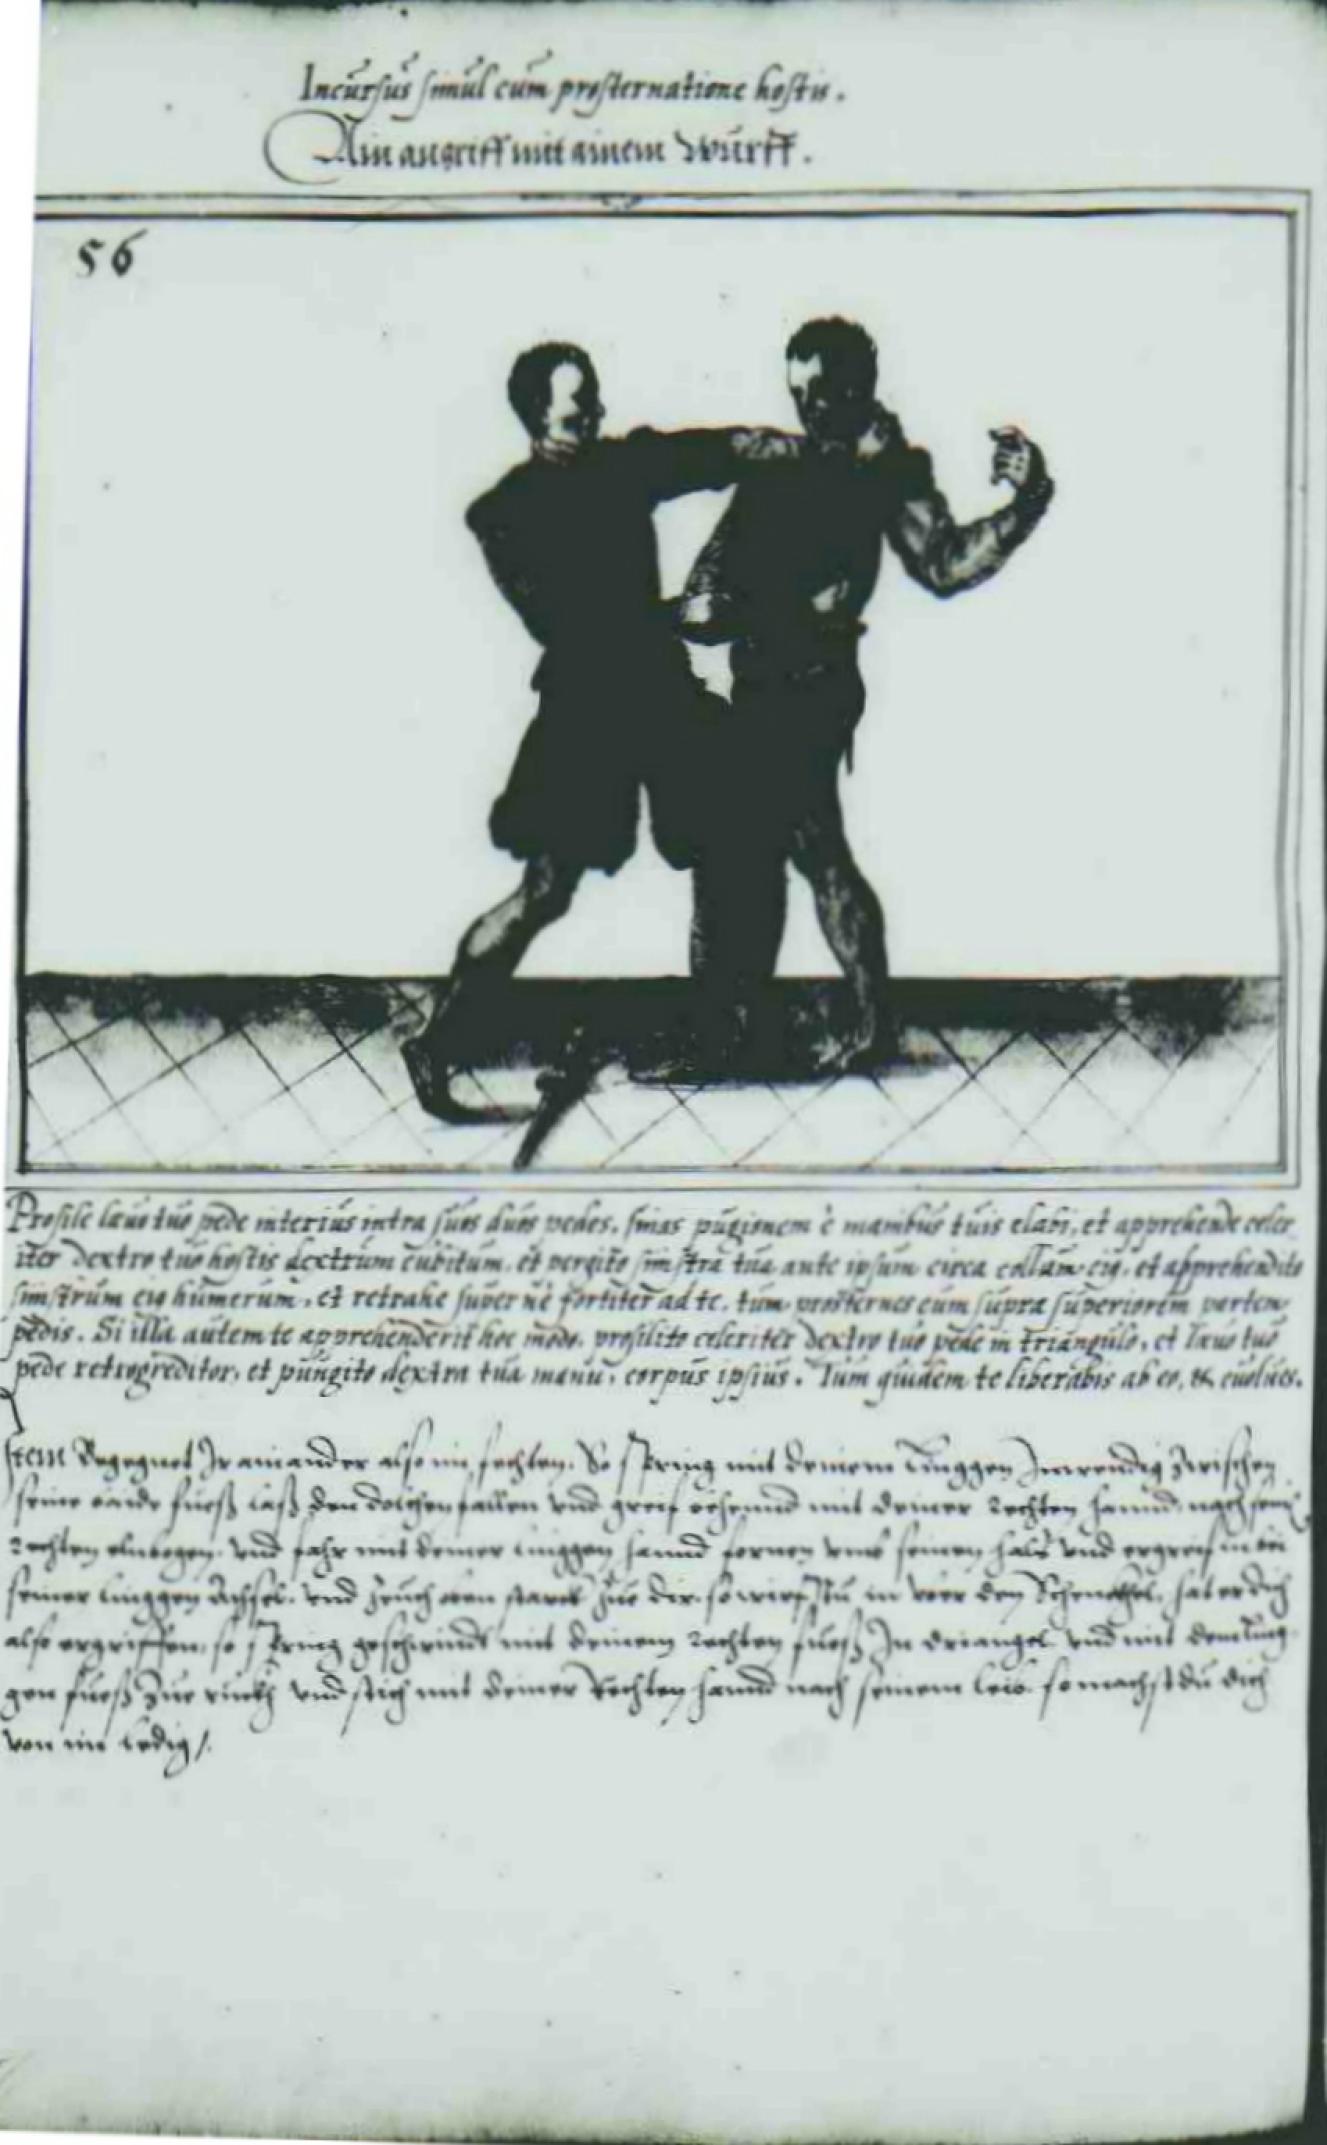 Incursus simul cum prosternatione hostis.
Ain angriff mit ainem Wurff.
56
Prosile laevo tuo pede interius intra suos duos pedes, sinas pugionem è manibus tuis elabi, et apprehende celer
iter dextro tuo hostis dextrum cubitum, et pergito sinistra tua ante ipsum circa collum eiq, et apprehendito
sinistrum eiq humerum, et retrahe supernè fortiter ad te, tum prosternes eum supra superiorem partem
pedis. Si illa autem te apprehenderit hoc modo, prosilito celeriter dextro tuo pede in triangulo, et laevo tuo
pede retrogreditor, et pungito dextra tua manu, corpus ipsius. Tum quidem te liberabis ab eo, &
Item Begegnet Ir ainander also im fechten. So spring mit deinem Linggen Inwendig zwischen
seine baide fuess lass den dolchen fallen vnd greif mit deiner rechten hannd nach seim
rechten elnbogen. vnd fahr mit deiner linggen hannd fornen vmb seinen hals vnd ergreif in bei
seiner linggen Achsel. vnd zeuch oben starck zue dir. so wirfstu in vber den Schenckhel. hat er dich
also ergriffen, so spring geschwindt mit deinem rechten fuess In driangel vnd mit dem ling
gen fuess zue ruckh vnd stich mit deiner Rechten hannd nach seinem leib. so machst du dich
von im ledig /.